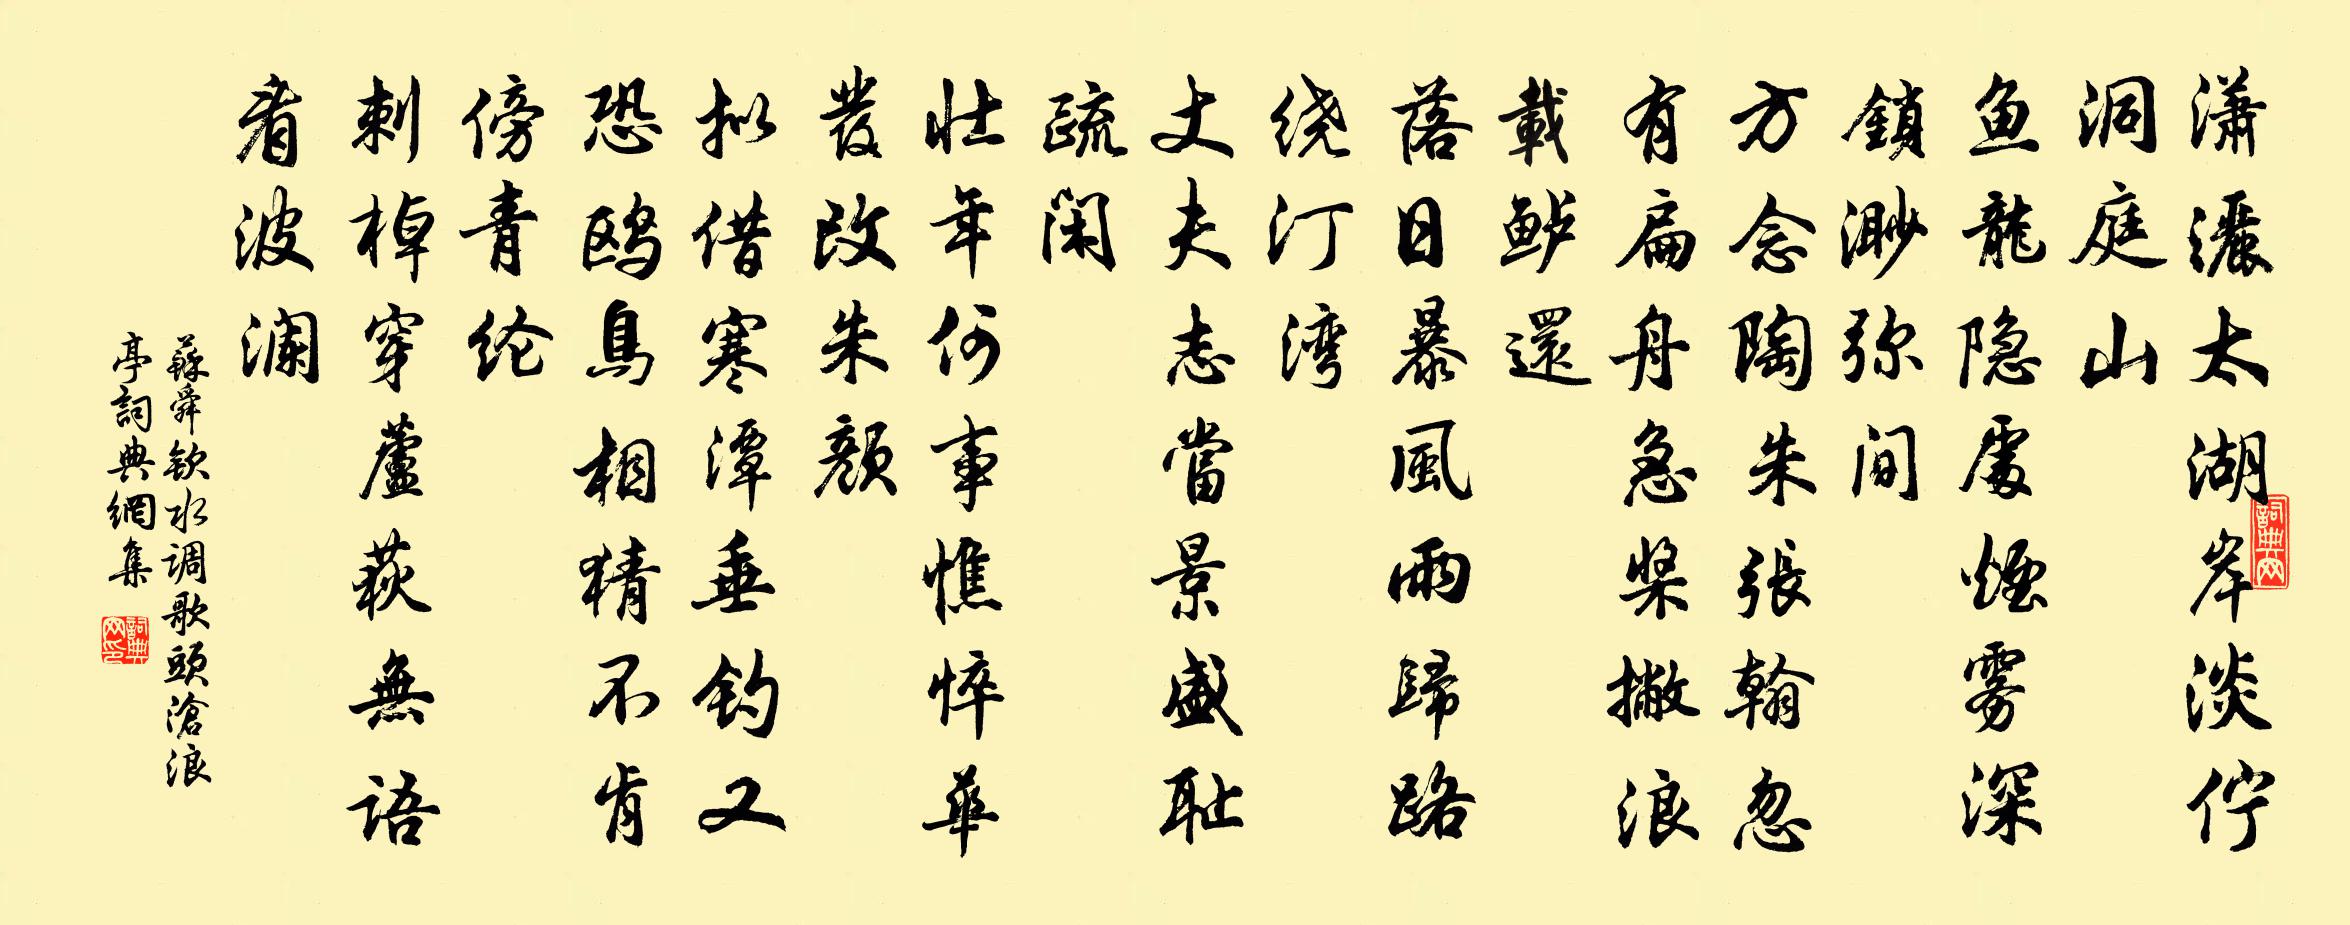 潇灑太湖岸淡佇
洞庭山
鱼龍隐處煙雾深
鎖渺弥间
方念陶朱張翰忽
有扁舟急槳撇浪
載鲈還
落日暴風雨歸路
绕汀湾
丈夫志當景盛耻
疏闲
壮年何事憔悴華
發改朱顏
拟借寒潭垂釣又
恐鸥鳥相猜不肯
傍青纶
刺棹穿蘆荻無語
看波澜
蘇舜钦水调歌頭滄浪
亭詞典網集
詞典网
詞典网印